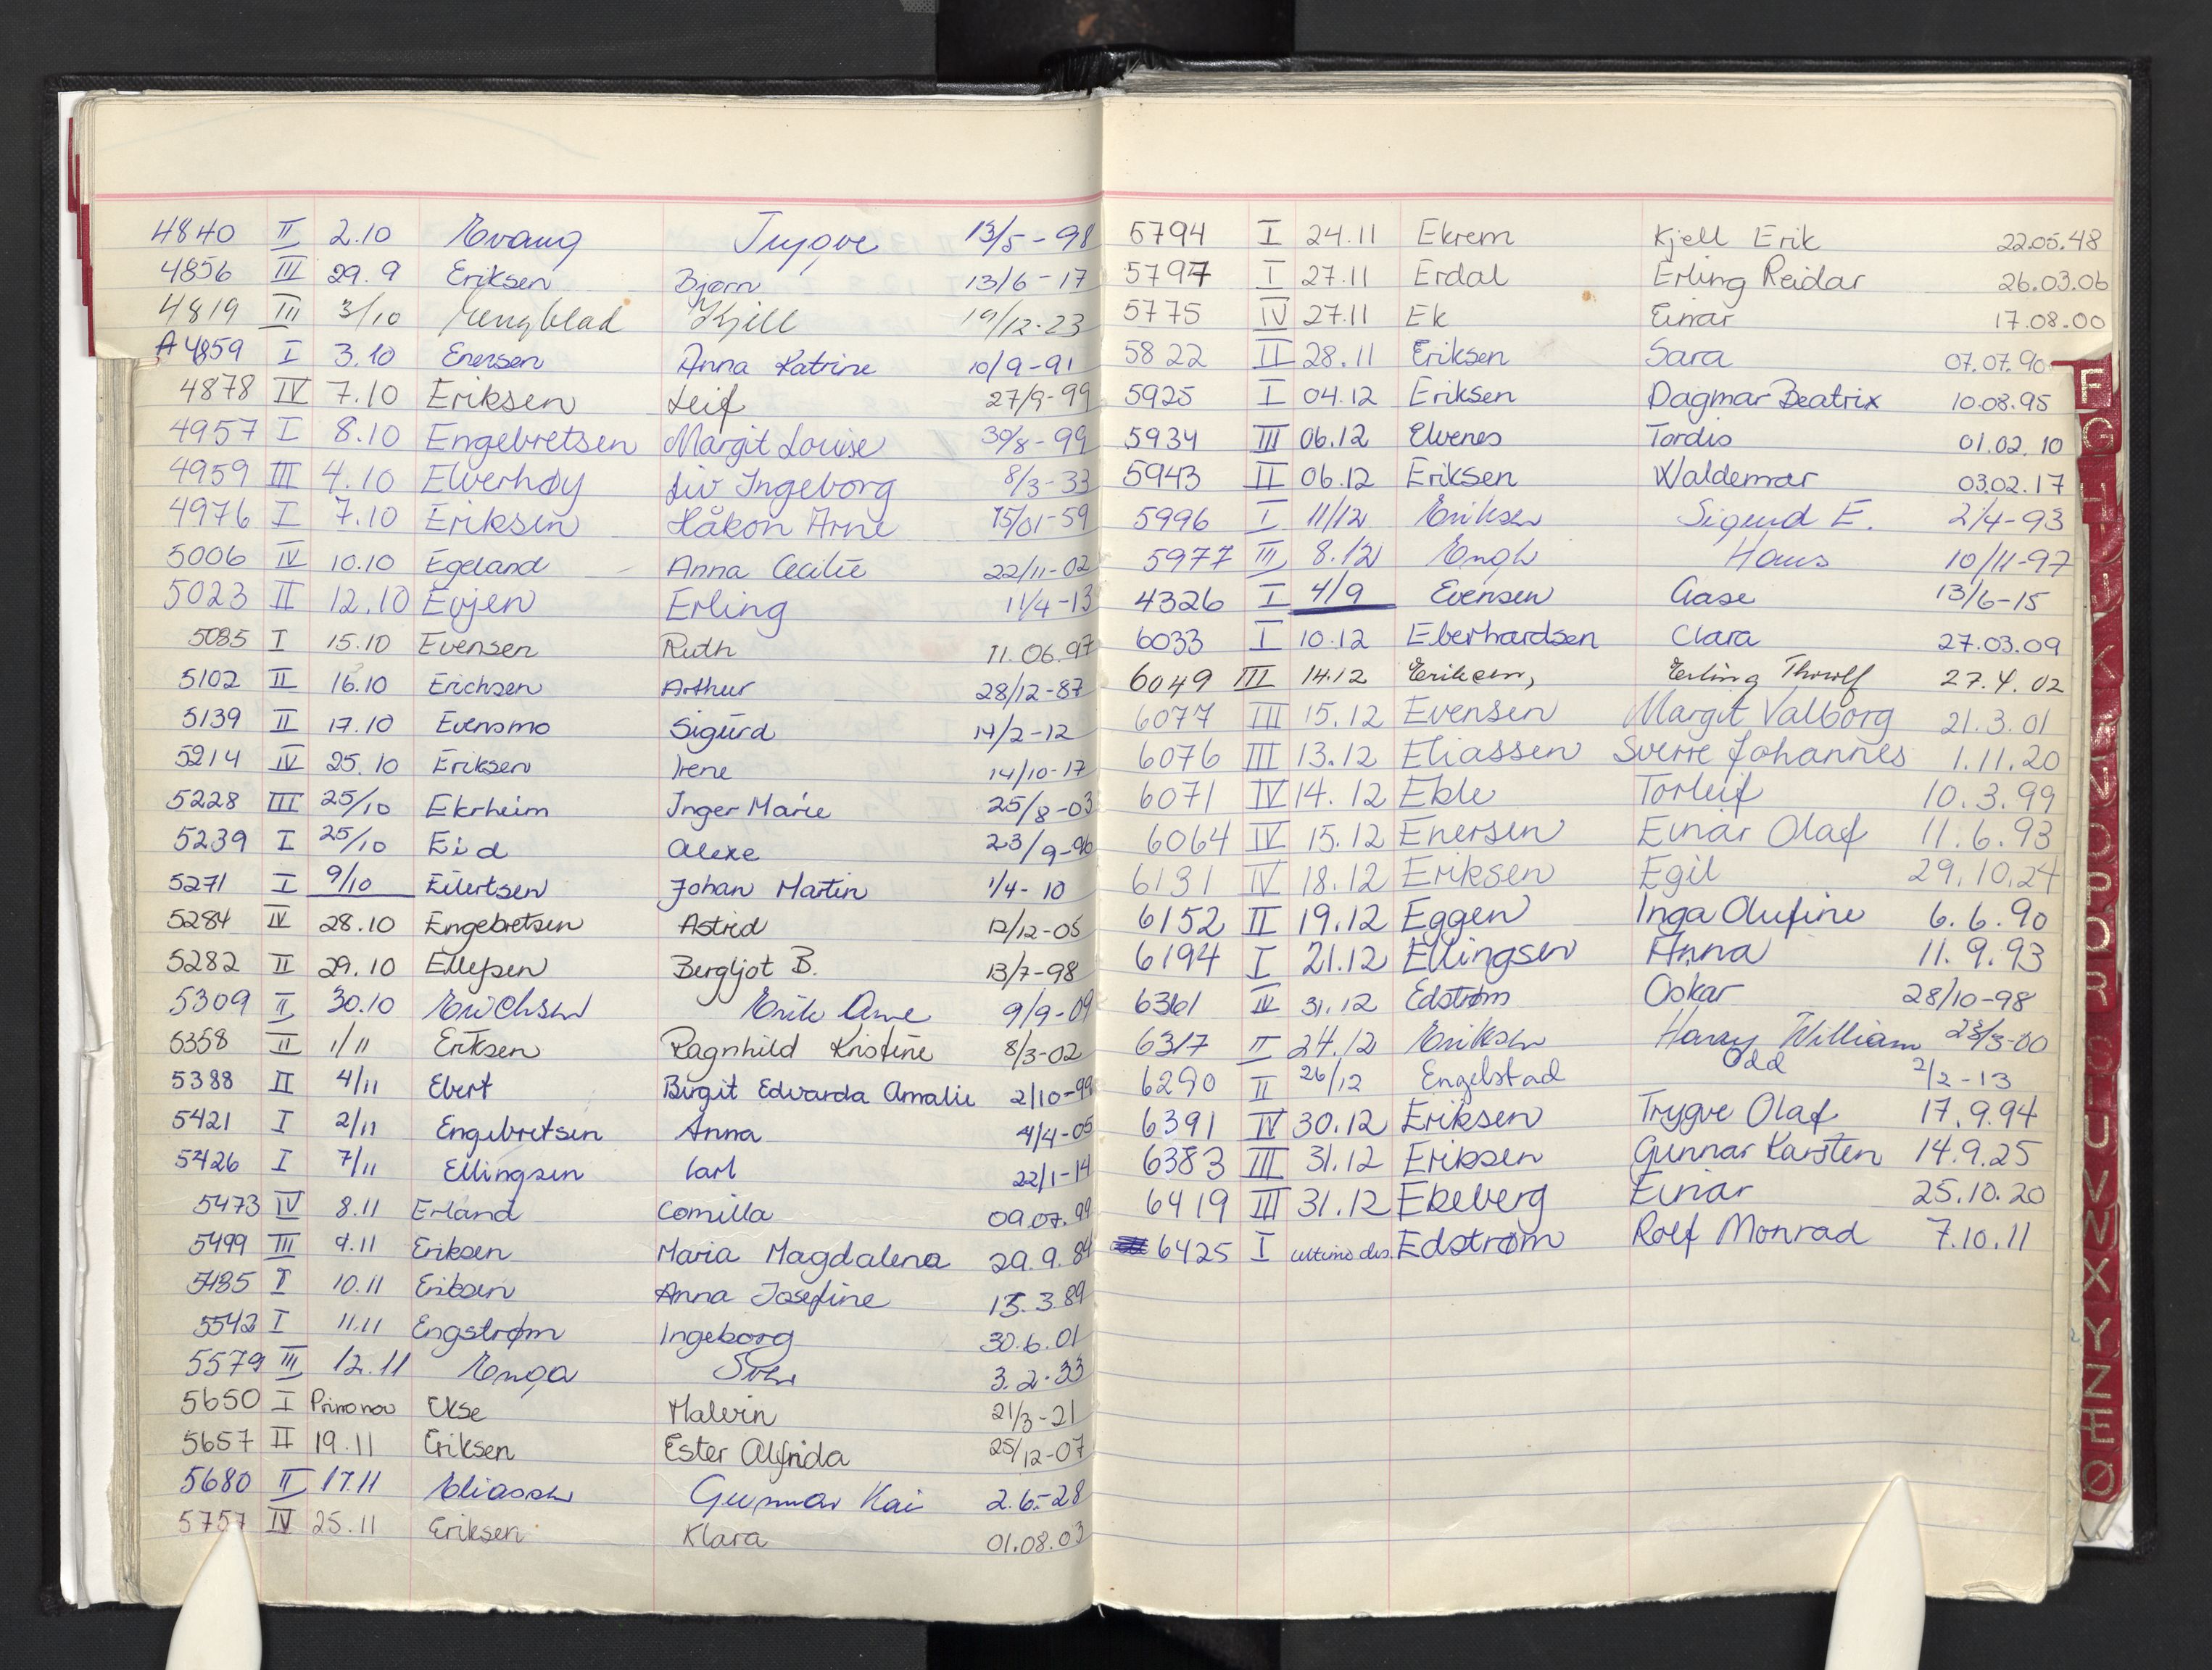 4840 II 2.10 Evang Trygve 13/5-98
4856 III 29.9 Eriksen Bjørn 13/6-17
4819 III 3/10 Engblad Kjell 19/12-23
A 4859 I 3.10 Enersen Anna Katrine 10/9-91
4878 IV 7.10 Eriksen Leif 27/9-99
4957 I 8.10 Engebretsen Margit Louise 30/8-99
4959 III 4.10 Elverhøy Liv Ingeborg 8/3-33
4976 I 7.10 Eriksen Håkon Arne 15/01-59
5006 IV 10.10 Egeland Anna Cecilie 22/11-02
5023 II 12.10 Evjen Erling 11/4-13
5085 I 15.10 Evensen Ruth 11.06.97
5102 II 16.10 Erichsen Arthur 28/12-87
5139 II 17.10 Evensmo Sigurd 14/2-12
5214 IV 25.10 Eriksen Irene 14/10-17
5228 III 25/10 Ekrheim Inger Marie 25/8-03
5239 I 25/10 Eid Alexe 23/9-96
5271 I 9/10 Eilertsen Johan Martin 1/4-10
5284 IV 28.10 Engebretsen Astrid 12/12-05
5282 II 29.10 Ellefsen Bergljot B. 13/7-98
5309 II 30.10 Erichsen Erik Arne 9/9-09
5358 II 1/11 Eriksen Ragnhild Kristine 8/3-02
5388 II 4/11 Ebert Birgit Edvarda Amalie 2/10-99
5421 I 2/11 Engebretsen Anna 4/4-05
5426 I 7/11 Ellingsen Carl 22/1-14
5473 IV 8.11 Erland Comilla 09.07.99
5499 III 9.11 Eriksen Maria Magdalena 29.9.84
5485 I 10.11 Eriksen Anna Josefine 15.3.89
5542 I 11.11 Engstrøm Ingeborg 30.6.01
5579 III 12.11 Enga 3.2.33
5650 I Primo nov Ekse Malvin 21/3-21
5657 II 19.11 Eriksen Ester Alfrida 25/12-07
5680 II 17.11 Eliassen Gunnar Kai 2.6-28
5757 IV 25.11 Eriksen Klara 01.08.03
5794 I 24.11 Ekrem Kjell Erik 22.05.48
5797 I 27.11 Erdal Erling Reidar 26.03.06
5775 IV 27.11 Ek Einar 17.08.00
5822 II 28.11 Eriksen Sara 07.07.90
5925 I 04.12 Eriksen Dagmar Beatrix 10.08.95
5934 III 06.12 Elvenes Tordis 01.02.10
5943 II 06.12 Eriksen Waldemar 03.02.17
5996 I 11/12 Eriksen Sigurd E. 2/4-93
5977 III 8.12 Engh Hans 10/11-97
4326 I 4/9 Evensen Aase 13/6-15
6033 I 10.12 Eberhardsen Clara 27.03.09
6049 III 14.12 Eriksen, Erling Thorolf 27.4.02
6077 III 15.12 Evensen Margit Valborg 21.3.01
6076 III 13.12 Eliassen Sverre Johannes 1.11.20
6071 IV 14.12 Ekle Torleif 10.3.99
6064 IV 15.12 Enersen Einar Olaf 11.6.93
6131 IV 18.12 Eriksen Egil 29.10.24
6152 II 19.12 Eggen Inga Olufine 6.6.90
6194 I 21.12 Ellingsen Anna 11.9.93
6361 IV 31.12 Edstrøm Oskar 28/10-98
6317 II 24.12 Eriksen Harry William 23/3-00
6290 II 26/12 Engelstad Odd 2/2-13
6391 IV 30.12 Eriksen Trygve Olaf 17.9.94
6383 III 31.12 Eriksen Gunnar Karsten 14.9.25
6419 III 31.12 Ekeberg Einar 25.10.20
6425 I ultimo des. Edstrøm Rolf Monrad 7.10.11
F
G
H
I
J
K
N
O
P
O
R
S
T
U
V
W
X
Y
Z
Æ
Ø